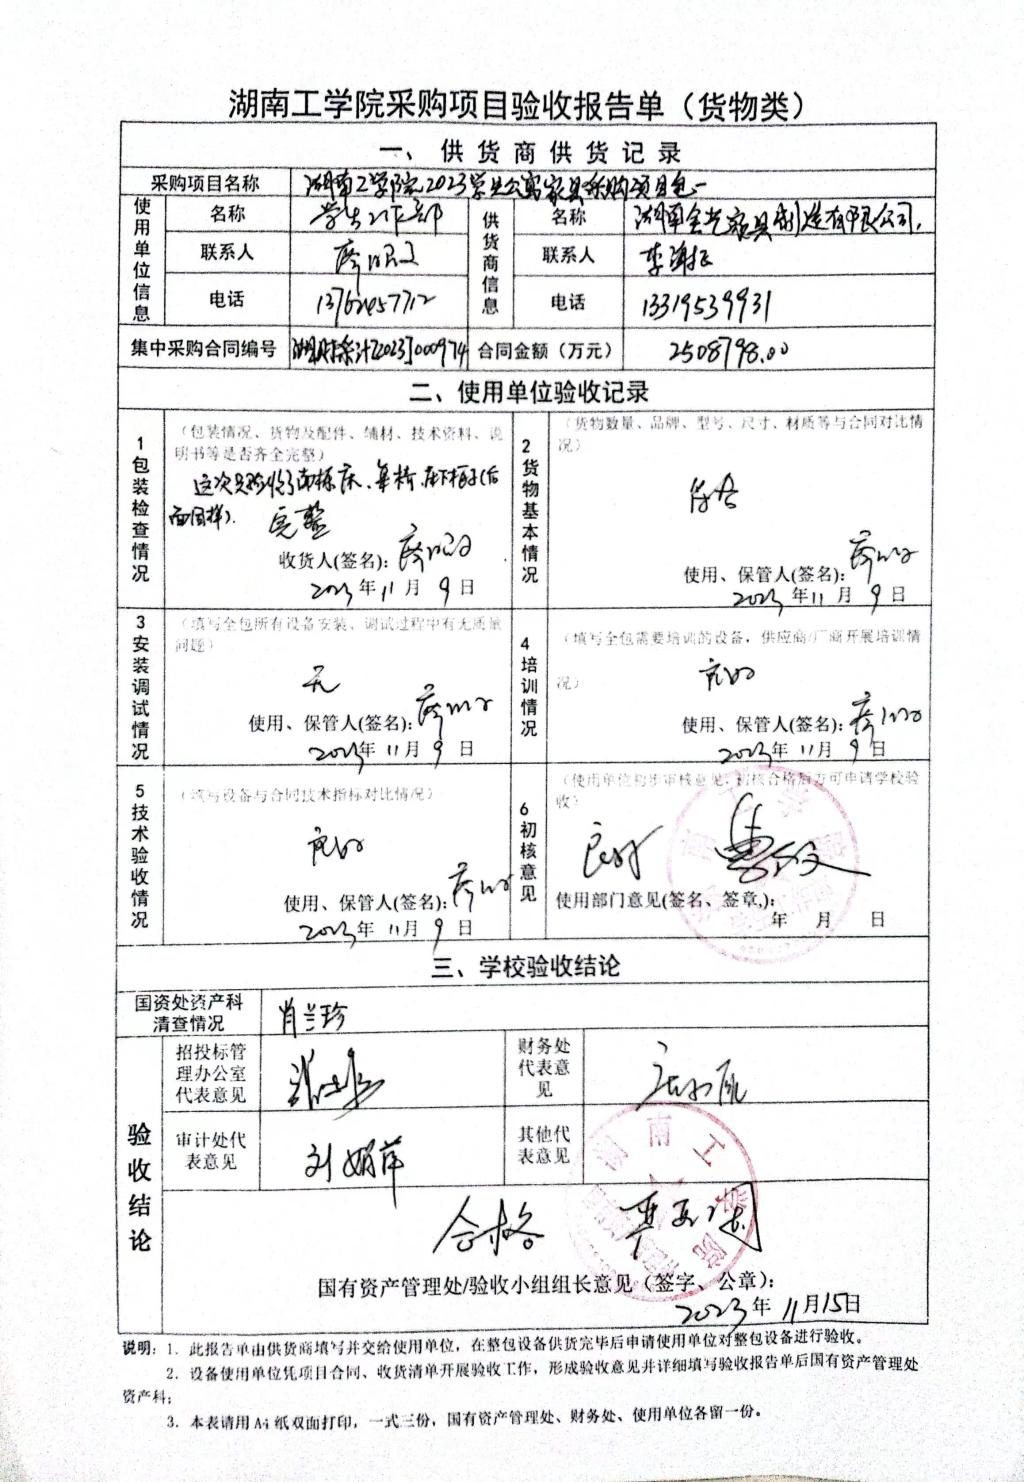 湖南工学院采购项目验收报告单（货物类）
一、供货商供货记录
采购项目名称 湖南工学院2023学生公寓家具采购项目包一
使用单位信息 名称 学生工作部 供货商信息 名称 湖南金光家具制造有限公司
联系人 联系人 李
电话 13762457712 电话 13319539931
集中采购合同编号 湖财采计[2023]000974 合同金额（万元） 2508798.00
二、使用单位验收记录
1包装检查情况
（包装情况、货物及配件、辅材、技术资料、说
明书等是否齐全完整）
这次只验收了南栋床、单椅、床下柜子(后
面同样).
完整
收货人(签名):
2023年11月9日
2货物基本情况
（货物数量、品牌、型号、尺寸、材质等与合同对比情
况）
符合
使用、保管人(签名):
2023年11月9日
3安装调试情况
（填写全包所有设备安装、调试过程中有无质量
问题）
无
使用、保管人(签名):
2023年11月9日
4培训情况
（填写全包需要培训的设备，供应商/厂商开展培训情
况）
良好
使用、保管人(签名):
2023年11月9日
5技术验收情况
（填写设备与合同技术指标对比情况）
良好
使用、保管人(签名):
2023年11月9日
6初核意见
（使用单位初步审核意见，初核合格后方可申请学校验
收）
良好
使用部门意见(签名、签章,):
年 月 日
三、学校验收结论
国资处资产科
清查情况
肖兰珍
验收结论
招投标管
理办公室
代表意见
财务处
代表意
见
审计处代
表意见
刘娟萍
其他代
表意见
合格
湖南工学院
国有资产管理处/验收小组组长意见（签字、公章）：
2023年11月15日
说明：1．此报告单由供货商填写并交给使用单位，在整包设备供货完毕后申请使用单位对整包设备进行验收。
2．设备使用单位凭项目合同、收货清单开展验收工作，形成验收意见并详细填写验收报告单后国有资产管理处
资产科；
3．本表请用A4纸双面打印，一式三份，国有资产管理处、财务处、使用单位各留一份。